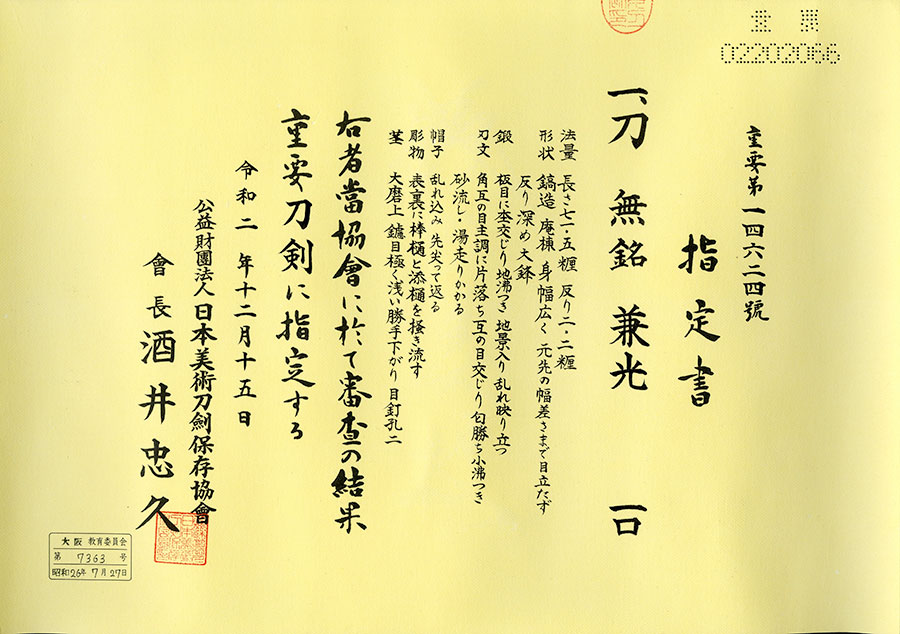 重要
02202066
重要第一四六二四號
指定書
一、刀 無銘 兼光 一口
法量 長さ七一・五糎 反り二・二糎
形状 鎬造 庵棟 身幅広く 元先の幅差さまで目立たず
反り深め 大鋒
鍛 板目に杢交じり 地沸つき 地景入り 乱れ映り立つ
刃文 角互の目主調に片落ち互の目交じり 匂勝ち小沸つき
砂流し・湯走りかかる
帽子 乱れ込み 先尖って返る
彫物 表裏に棒樋と添樋を掻き流す
茎 大磨上 鑢目極く浅い勝手下がり 目釘孔二
右者當協會に於て審査の結果
重要刀剣に指定する
令和二年十二月十五日
公益財團法人日本美術刀劍保存協會
會長 酒井忠久
大阪 教育委員会
第 7363 号
昭和26年 7月27日